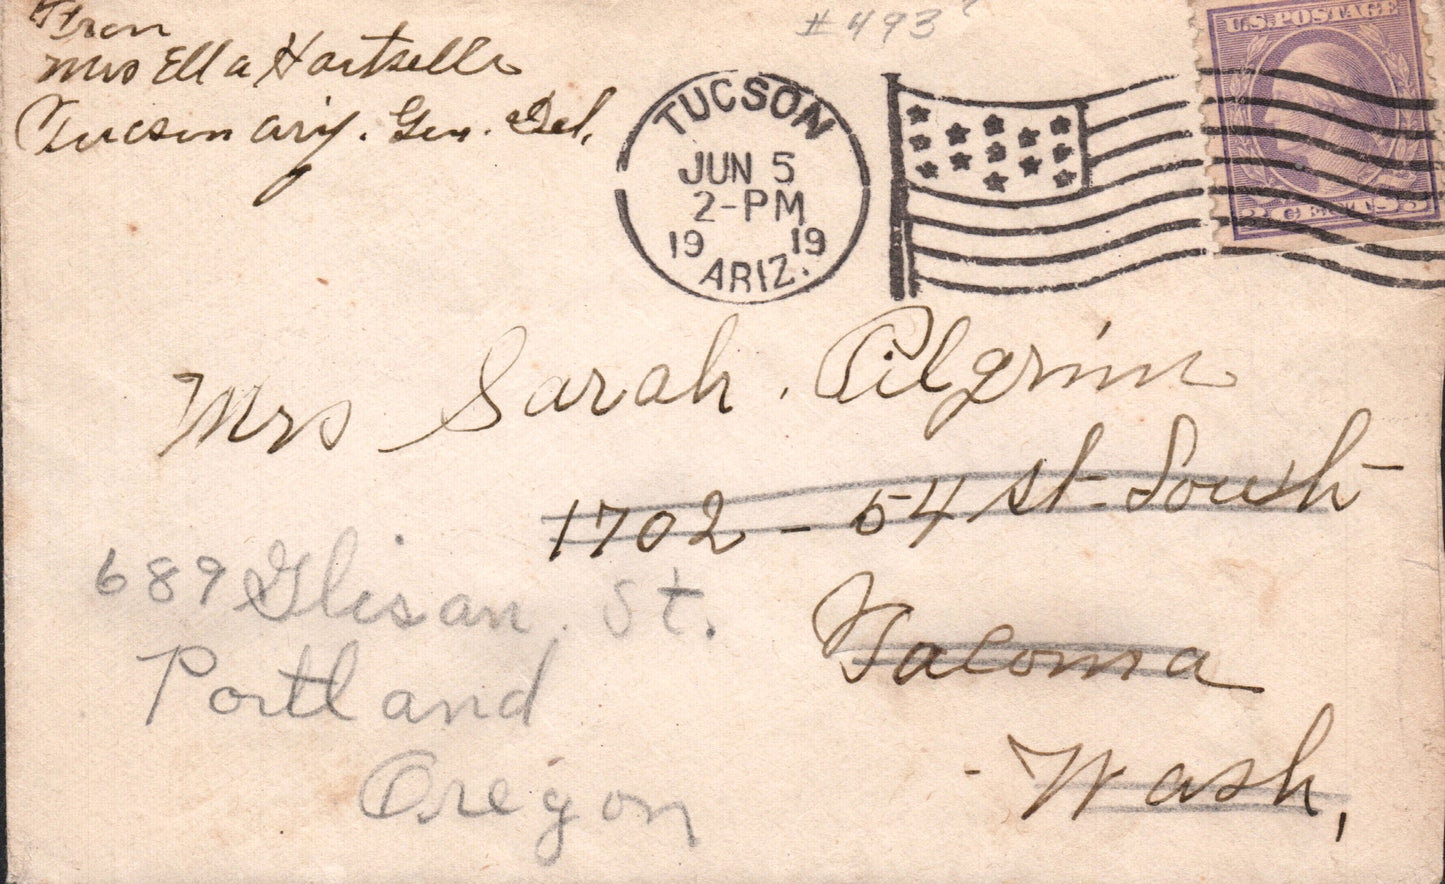 From
Mrs Ella Hartzelle
Tucson Ariz. Gen. Del.
#493?
TUCSON
JUN 5
2-PM
19 19
ARIZ.
U.S.POSTAGE
3 CENTS 3
Mrs Sarah. Pilgrim
1702 - 54 st. South
Tacoma
Wash,
689 Glisan. St.
Portland
Oregon